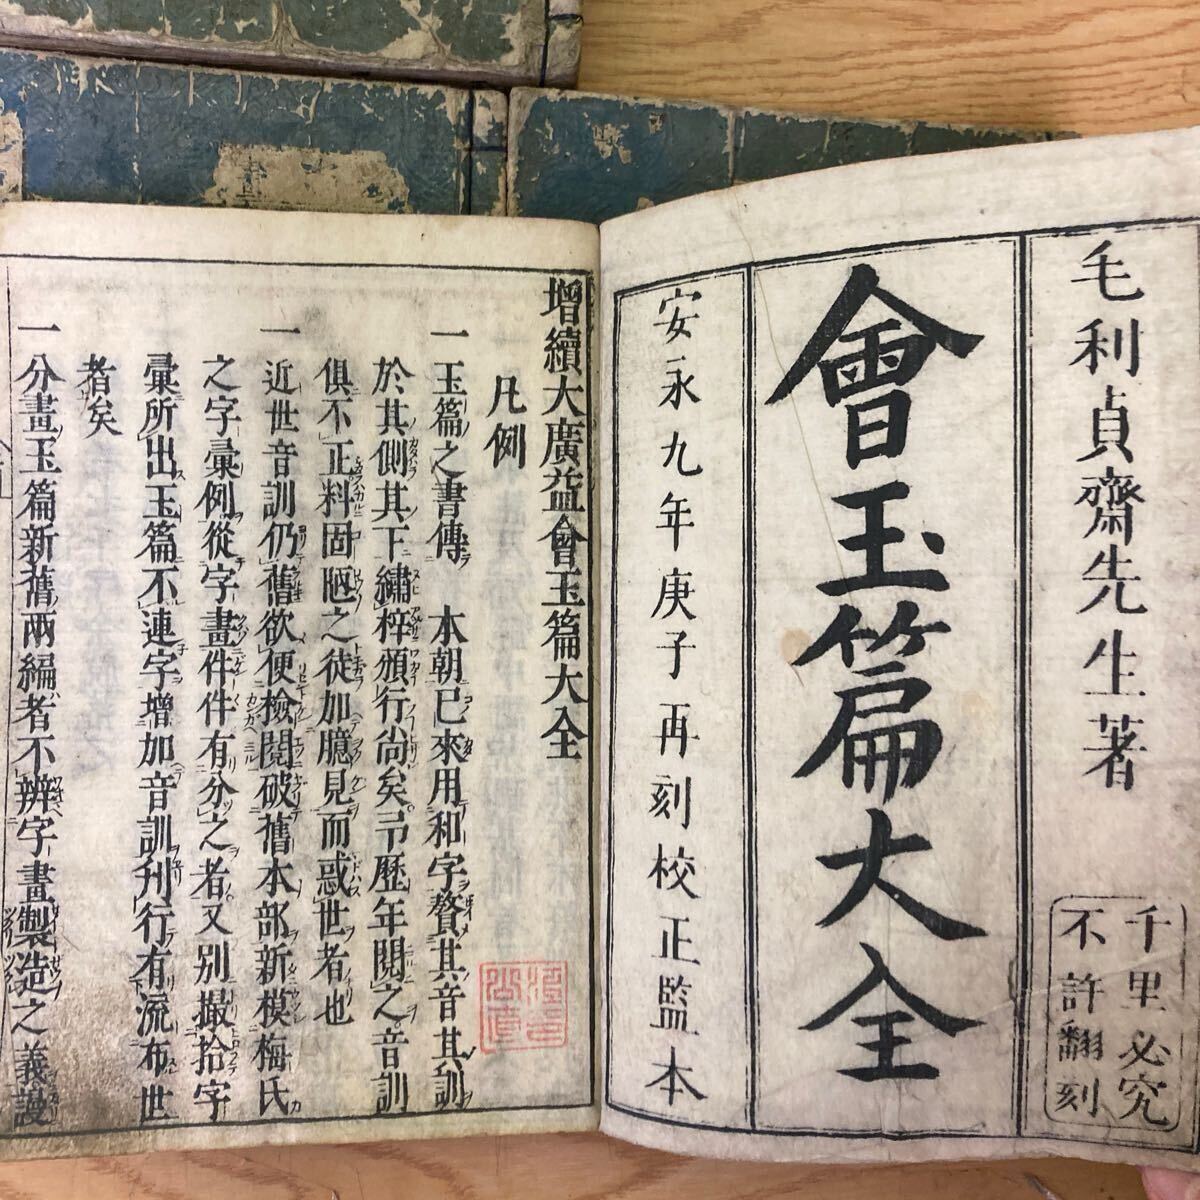 毛利貞齋先生著
千里必究
不許翻刻
會玉篇大全
安永九年庚子再刻校正監本
增續大廣益會玉篇大全
凡例
一玉篇之書傳 本朝已來用和字贅其音其訓
於其側其下繡梓頒行尚矣予歷年閱之音訓
俱不正料固陋之徒加臆見而惑世者也
一近世音訓仍舊欲便檢閱破舊本部新模梅氏
之字彙例從字畫件件有分之者又別撮拾字
彙所出玉篇不連字增加音訓刊行有流布世
者矣
一分畫玉篇新舊兩編者不辨字畫製造之義謾